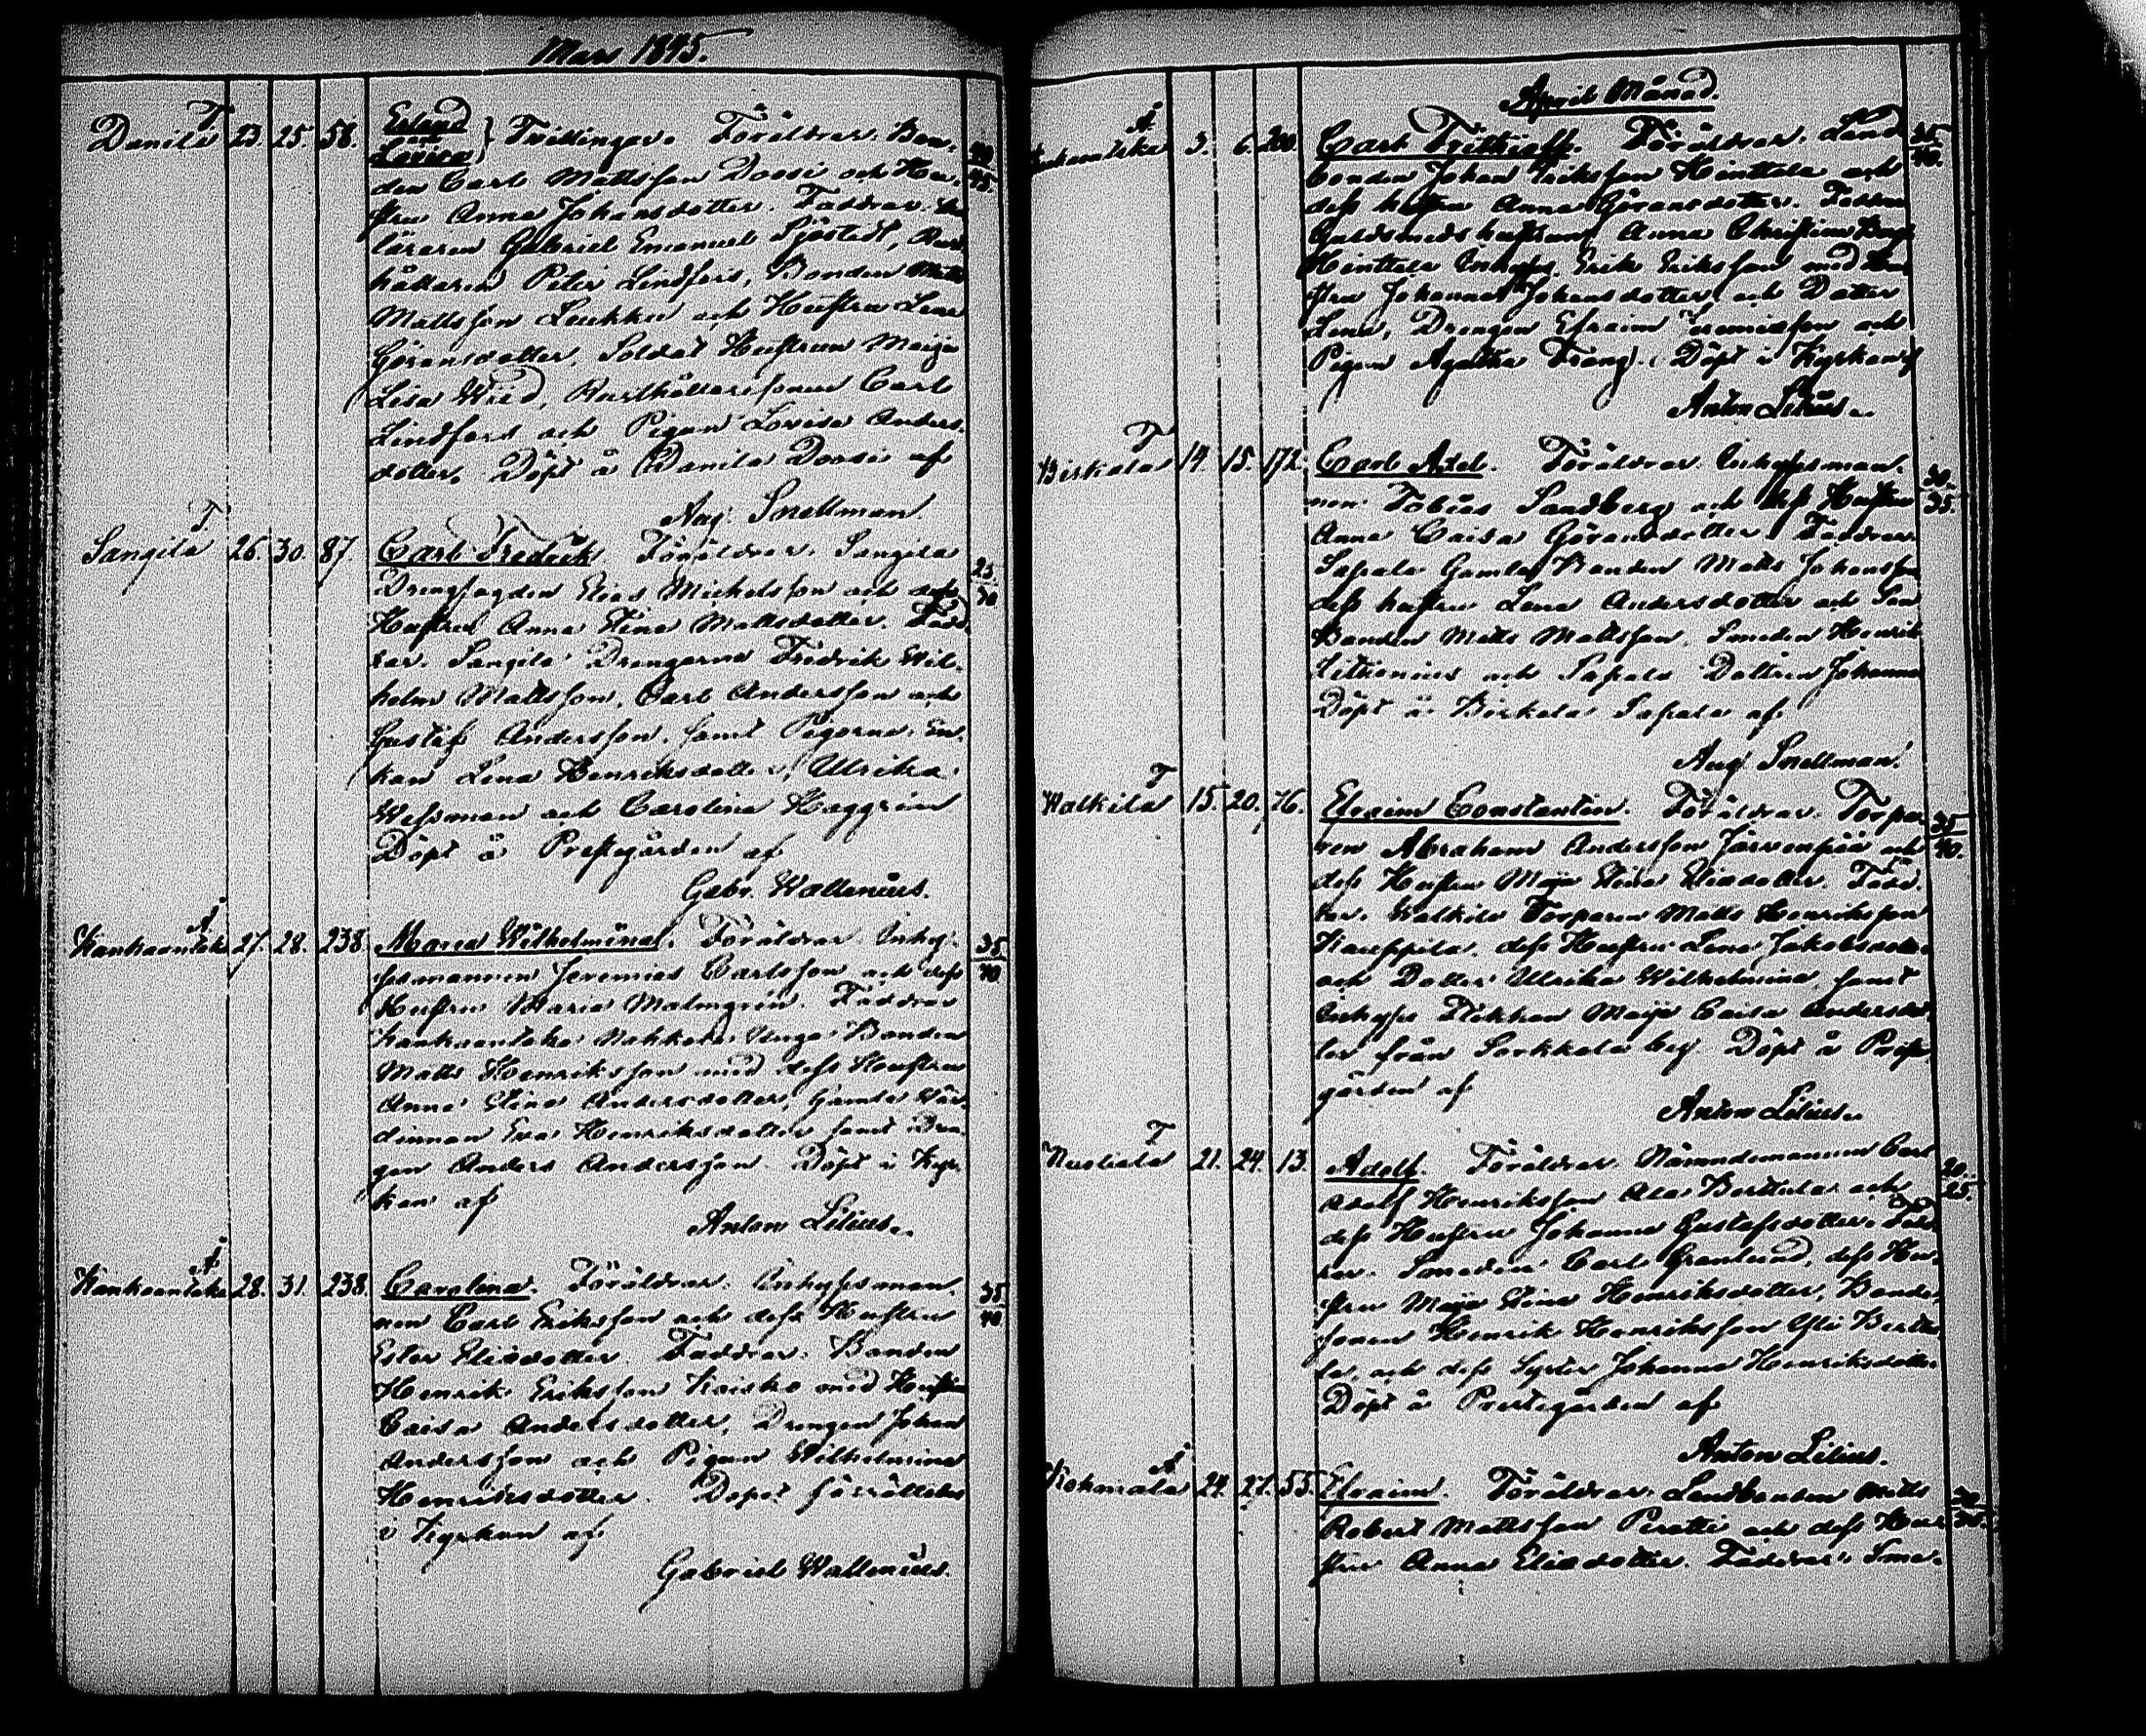 Mars 1845.
T
Danila 23. 25. 58. Erland
och
Lovisa } Tvillingar. Föräldrar. Bon- 40 45.
den Carl Mattsson Doosi och Hu-
stru Anna Johansdotter. Faddrar.
läraren Gabriel Emanuel Sjöstedt, Rust
hållaren Peter Lindfors, Bonden Matts
Mattsson Luukku och Hustru Lena
Göransdotter, Soldat Hustrun Maija
Lisa Wred, Rusthållaresonen Carl
Lindfors och Pigan Lovisa Anders-
dotter. Döpt å Danila Doosi af
Aug. Snellman.
T
Sangila 26. 30. 87. Carl Fredrik. Föräldrar. Sangila 25. 30
Drengfogden Elias Michelsson och dess
Hustru Anna Stina Mattsdotter. Fadd-
rar. Sangila Drengarne Fredrik Wil-
helm Mattsson, Carl Andersson och
Gustaf Andersson, samt Pigorna, En-
kan Lena Henriksdotter, Ulrika
Wessman och Carolina Haggrén
Döpt å Prestegården af
Gabr. Wallenius.
Å
Kankaantaka 27. 28. 238. Maria Wilhelmina. Föräldrar. Inhy- 35 40
sesmannen Jeremias Carlsson och dess
Hustru Maria Malmgrén. Faddrar
Kankaantaka Nohkola Unga Bonden
Matts Henriksson med dess Hustru
Anna Stina Andersdotter, Gamla Wär-
dinnan Eva Henriksdotter samt Dren-
gen Anders Andersson. Döpt i Kyr-
kan af
Anton Lilius.
Å
Kankaantaka 28. 31. 238. Carolina. Föräldrar. Inhysesman- 35 40
nen Carl Eriksson och dess Hustru
Ester Eliædotter. Faddrar. Bonden
Henrik Eriksson Koisko med Hustru
Caisa Andersdotter, Drengen Johan
Andersson och Pigan Wilhelmina
Henriksdotter. Dopet förrättades
i Kyrkan af
Gabriel Wallenius.
April Månad.
Å
3. 6. 200. Carl Frithioff. Föräldrar. Land- 35 40.
bonden Johan Eriksson Hinttala och
dess hustru Anna Göransdotter. Faddrar
Guldsmeds hustrun Anna Christina Berg
Hinttala Inhyses Erik Eriksson med Hu-
stru Johanna Johansdotter och Dotter
Lena, Drengen Efraim Jeremiasson och
Pigan Agatha Frang. Döpt i Kyrkan af
Anton Lilius.
T
Birkala 14. 15. 172. Carl Axel. Föräldrar. Inhysesman- 30. 35.
nen Tobias Sandberg och dess Hustru
Anna Caisa Göransdotter Faddrar.
Sapala Gamla Bonden Matts Johansson
dess hustru Lena Andersdotter och Son
Bonden Matts Mattsson, Smeden Henrik
och Sapala Dottren Johanna
Döpt å Birkala Sapala af
Aug Snellman.
T
Walkila 15. 20. 76. Efraim Constantin. Föräldrar. Torpa- 35 40.
ren Abraham Andersson Järvenpää och
dess Hustru Maja Stina Eliædotter. Fadd-
rar. Walkila Torparen Matts Henriksson
Kauppila, dess Hustru Lena Jakobsdotter
och Dotter Ulrika Wilhelmina, samt
Inhyses Flickan Maija Caisa Andersdot-
ter från Sorkkala by. Döpt å Prest-
gården af
Anton Lilius.
T
Nuoliala 21. 24. 13. Adolf. Föräldrar. Nämndemannen Carl 20. 25.
Adolf Henriksson Ala Perttula och
dess Hustru Johanna Gustafsdotter. Fadd-
rar. Smeden Carl Granlund, dess Hu-
stru Maja Stina Henriksdotter, Bonde-
sonen Henrik Henriksson Yli Perttu-
la, och dess Syster Johanna Henriksdotter
Döpt å Prestegården af
Anton Lilius.
Å
Kohmala 24. 27. 55. Efraim. Föräldrar. Landbonden Matts
Robert Mattsson Peratti och dess Hu-
stru Anna Eliædotter. Faddrar. Sme-